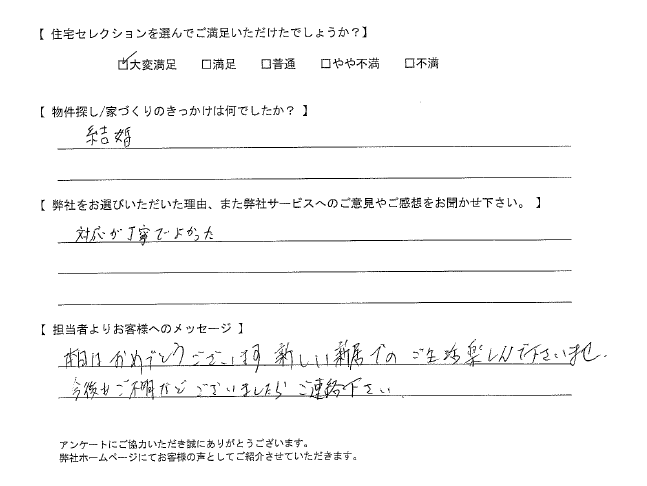 【 住宅セレクションを選んでご満足いただけたでしょうか？】
☑大変満足 □満足 □普通 □やや不満 □不満
【 物件探し/家づくりのきっかけは何でしたか？ 】
結婚
【 弊社をお選びいただいた理由、また弊社サービスへのご意見やご感想をお聞かせ下さい。 】
対応が丁寧でよかった
【 担当者よりお客様へのメッセージ 】
本日はおめでとうございます 新しい新居でのご生活楽しんで下さいませ.
今後もご不明などございましたらご連絡下さい.
アンケートにご協力いただき誠にありがとうございます。
弊社ホームページにてお客様の声としてご紹介させていただきます。